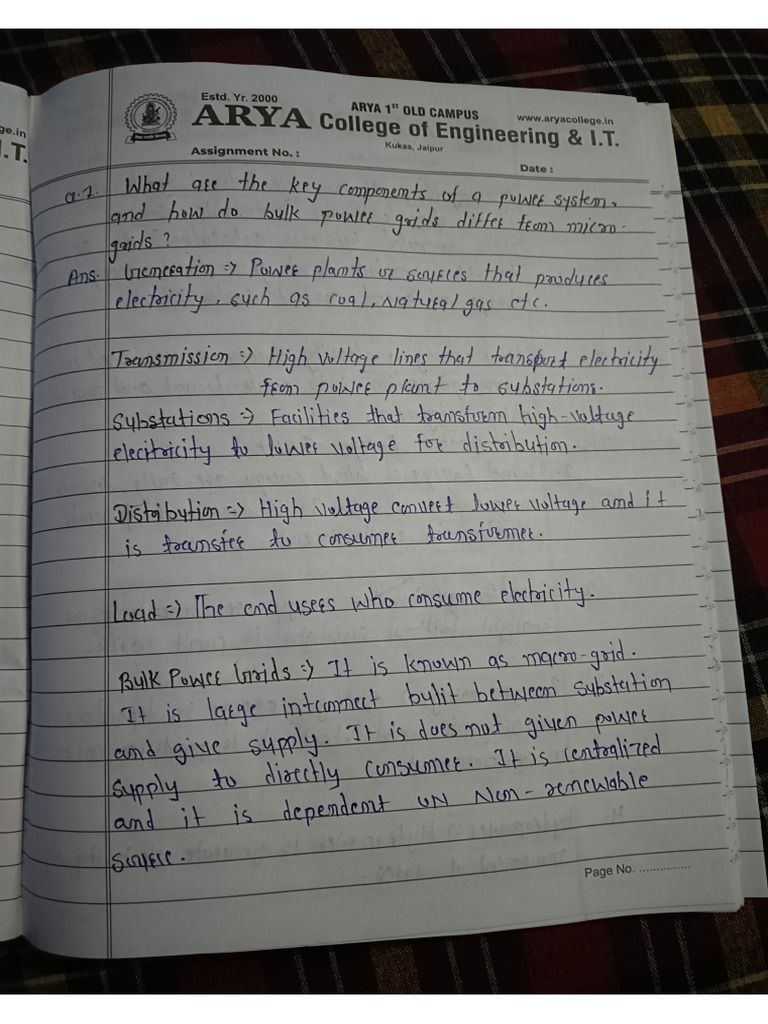 ge.in
I.T.
Estd. Yr. 2000
ARYA 1st OLD CAMPUS
www.aryacollege.in
ARYA College of Engineering & I.T.
Kukas, Jaipur
Assignment No. :
Date :
Q.2. What are the key components of a power system,
and how do bulk power grids differ from micro-
grids ?
Ans. Generation => Power plants or sources that produces
electricity, such as coal, Natural gas etc.
Transmission => High voltage lines that transport electricity
from power plant to substations.
Substations => Facilities that transform high-voltage
elecitricity to lower voltage for distribution.
Distribution => High voltage convert lower voltage and it
is transfer to consumer transformer.
Load => The end users who consume electricity.
Bulk Power Grids => It is known as macro-grid.
It is large intconnect bulit between substation
and give supply. It is does not given power
supply to directly consumer. It is centralized
and it is dependent on Non-renewable
source.
Page No. ...............